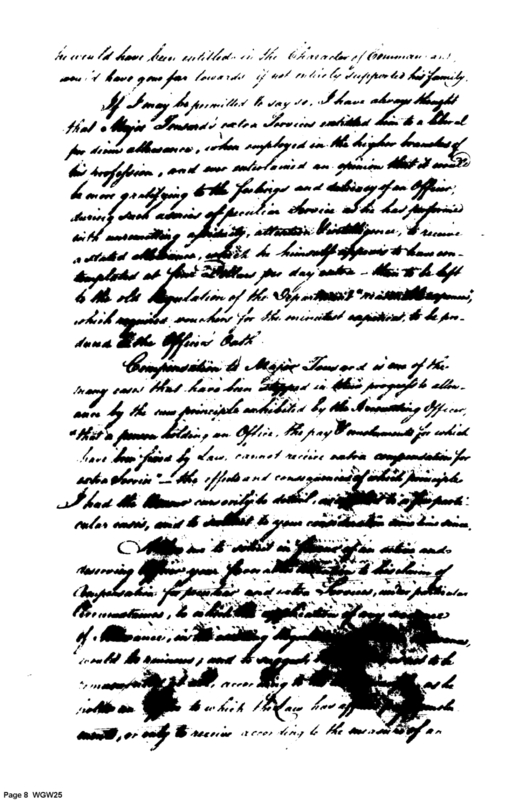 he would have been entitled in the Character of Comman
would have gone far towards if not entirely supported his family.
If I may be permitted to say so, I have always thought
that Major Tousards extra Services entitled him to a liberal
per diem allowance, when employed in the higher branches of
his profession, and ever entertained an opinion that it would
be more gratifying to the feelings and delicacy of an Officer,
during such a series of peculiar Service as he has performed
with unremitting assiduity, attention & intelligence, to receive
a stated allowance, which he himself appears to have con-
templated at five Dollars per day extra — than to be left
to the old Regulation of the Department
which required vouchers for the minutest expences, to be pro-
duced to the Officers Oath.
Compensation to Major Tousard is one of the
many cases that have been stopped in their progress to allow-
ance by the principle exhibited by the Accounting Officer,
"that a person holding an Office, the pay & emoluments for which
have been fixed by Law, cannot receive extra compensation for
extra Service" — the effects and consequences of which principle
I had the to detail, as to a few parti-
cular cases, and to submit to your consideration some time since.
me to solicit in favour of an active and
deserving Officer your favorable to his claim of
Compensation for peculiar and extra Services, under particular
Circumstances, to which the application of any
of Allowance, in the existing Regulations
would be ruinous, and to suggest to be
according to the as he
holds an Office to which the Law has
ments, or only to receive according to the measure of an
Page 8 WGW25